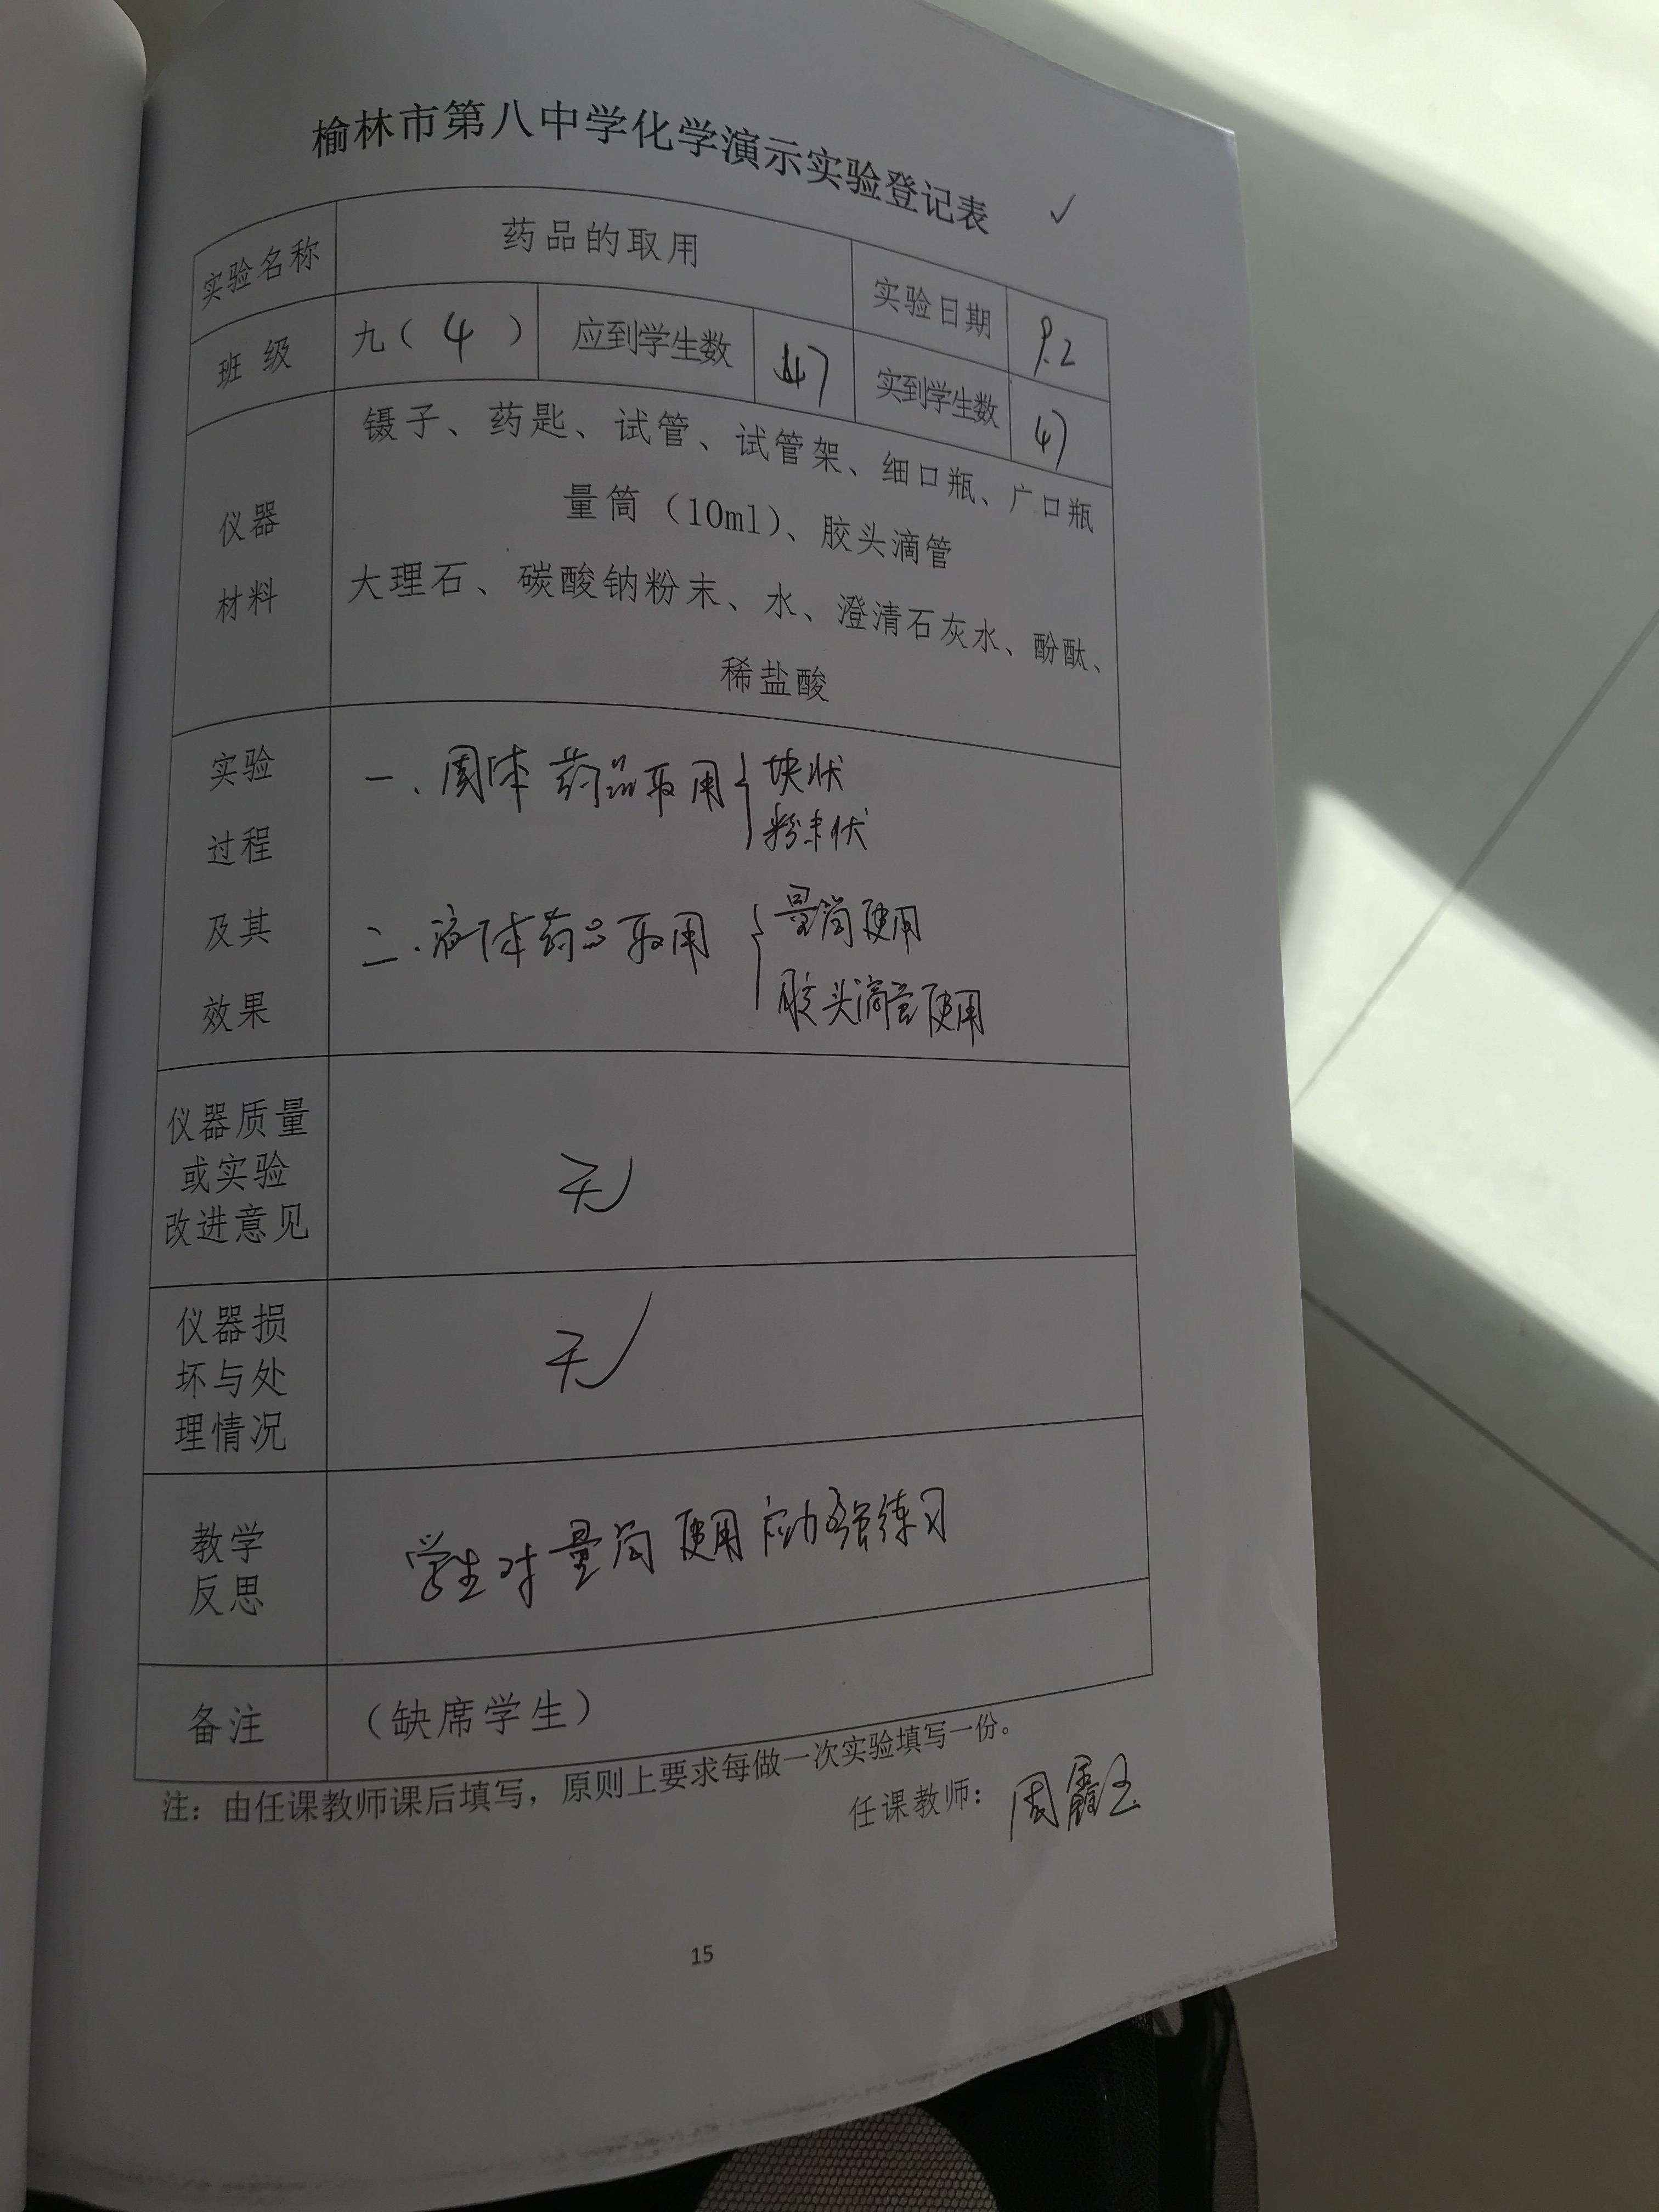 榆林市第八中学化学演示实验登记表 ✓
实验名称 药品的取用 实验日期 9.2
班 级 九（4） 应到学生数 47 实到学生数 47
仪器
材料
镊子、药匙、试管、试管架、细口瓶、广口瓶
量筒（10ml）、胶头滴管
大理石、碳酸钠粉末、水、澄清石灰水、酚酞、
稀盐酸
实验
过程
及其
效果
一、固体药品取用{块状
粉末状
二、液体药品取用{量筒使用
胶头滴管使用
仪器质量
或实验
改进意见
无
仪器损
坏与处
理情况
无
教学
反思
学生对量筒使用应加强练习
备注 （缺席学生）
注：由任课教师课后填写，原则上要求每做一次实验填写一份。
任课教师：周鑫玉
15